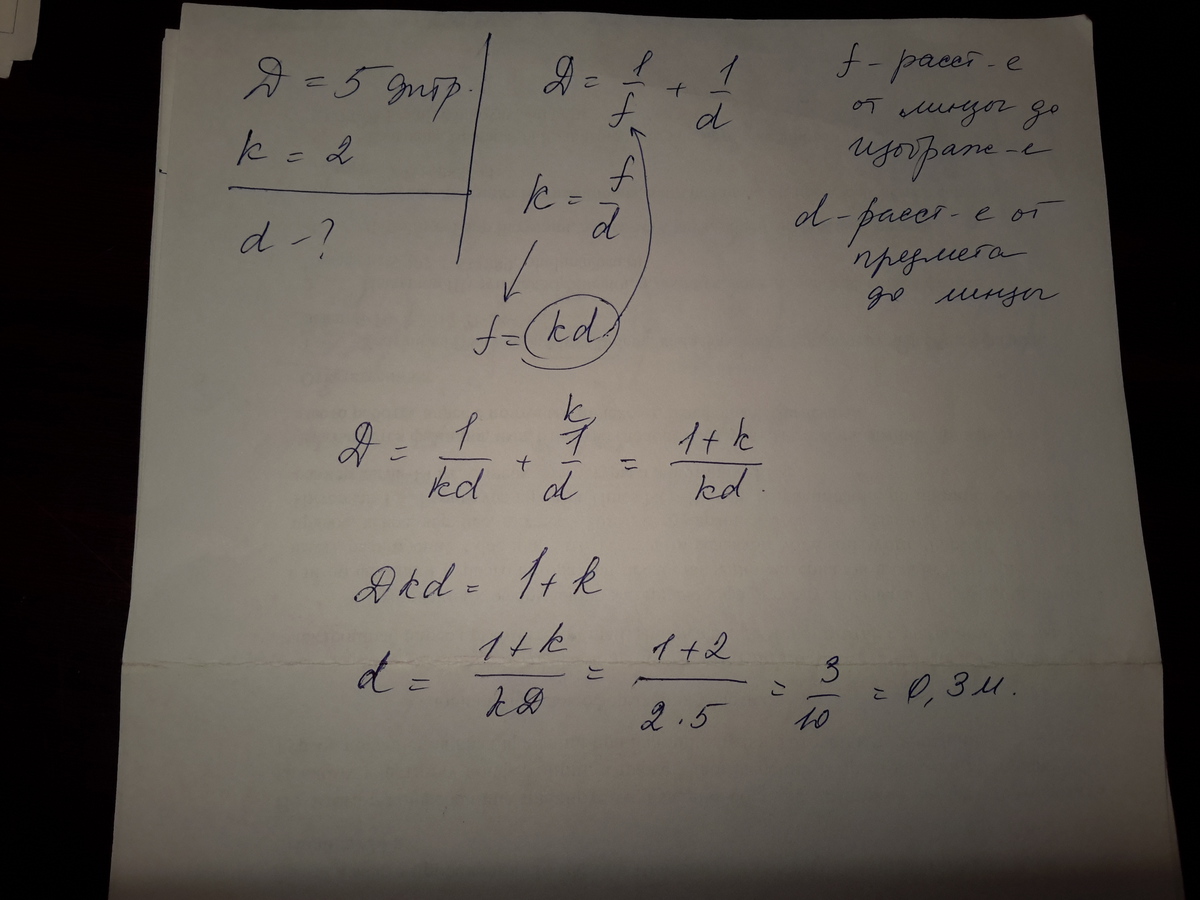 D = 5 дптр.
k = 2
d - ?
D = 1/f + 1/d
k = f/d
f = kd
f - расст-е
от линзы до
изображ-е
d - расст-е от
предмета
до линзы
D = 1/kd + 1/d k = 1+k/kd.
Dkd = 1+k
d = 1+k/kD = 1+2/2·5 = 3/10 = 0,3 м.